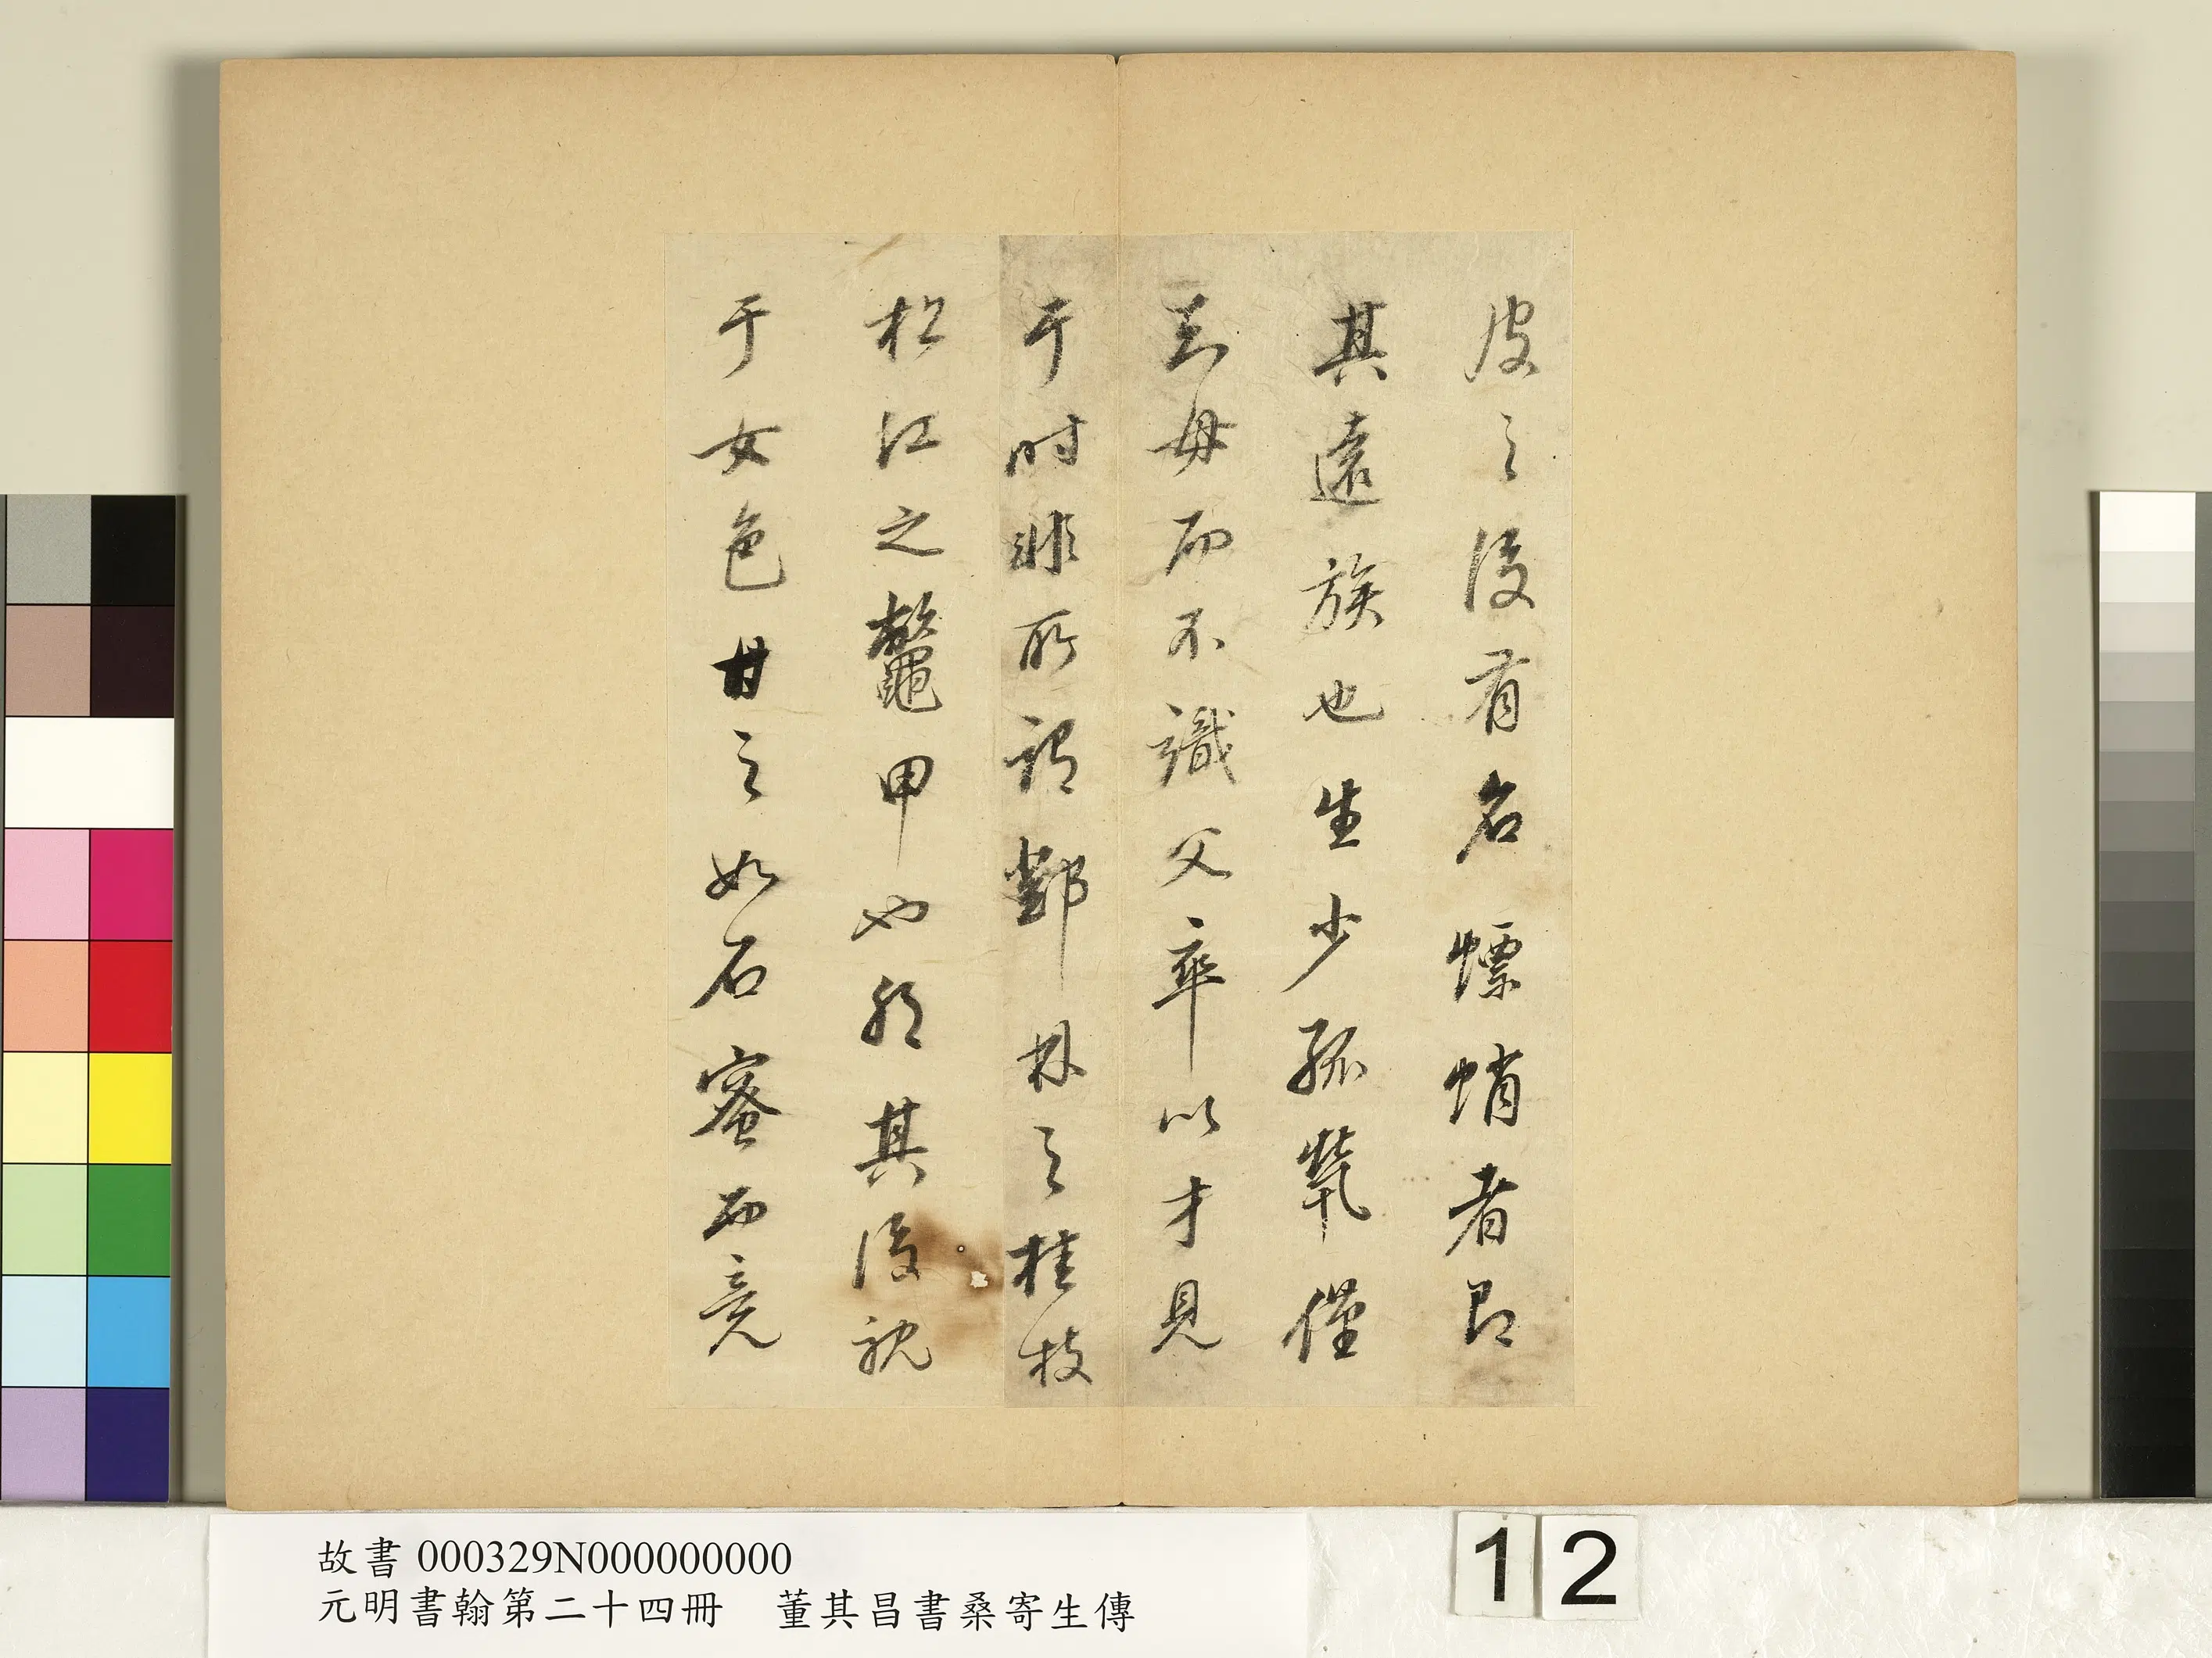 皮之後有名螵蛸者即
其遠族也生少孤煢僅
知母而不識父卒以才見
于時非所謂鄧林之桂枝
松江之鼈甲也耶其後耽
于女色甘之如石蜜而竟
故書 000329N000000000
元明書翰第二十四冊　董其昌書桑寄生傳
12